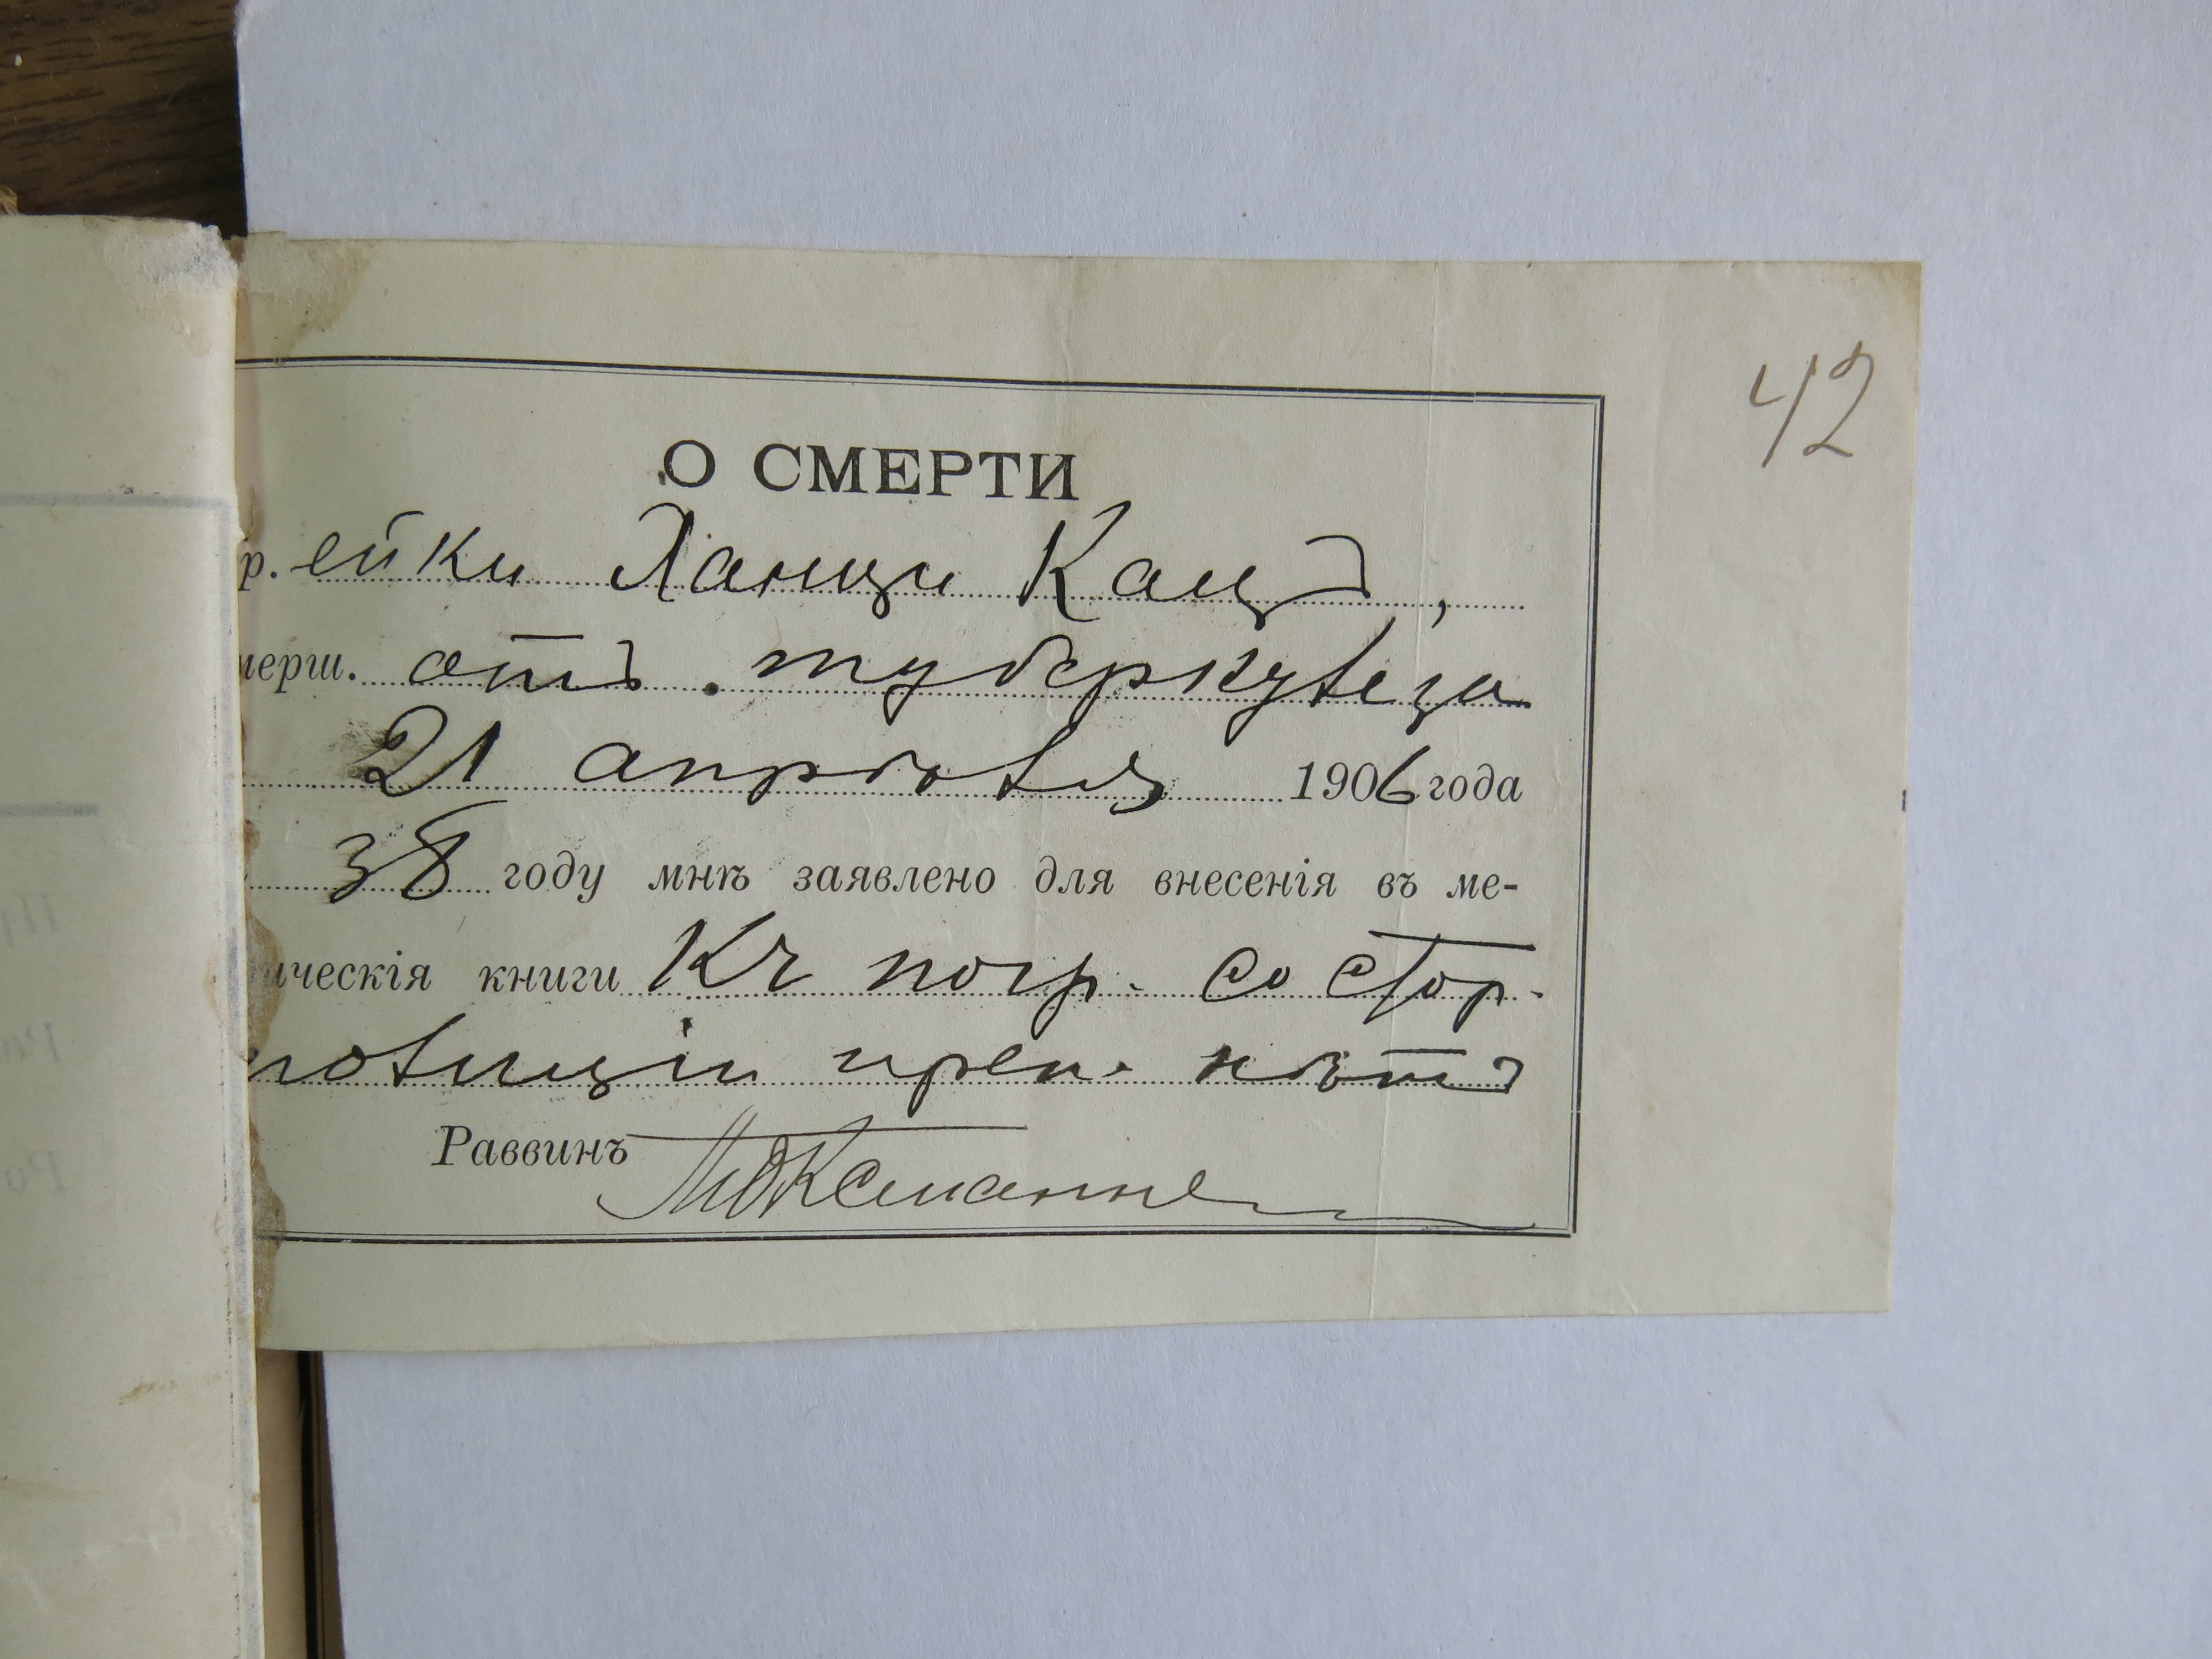 42
О СМЕРТИ
р. ейки Ханци Кацъ,
мерш. отъ туберкулеза
21 апрѣля 1906 года
38 году мнѣ заявлено для внесенія въ ме-
ическія книги Къ погр. со стор.
полиціи преп. нѣтъ
Раввинъ